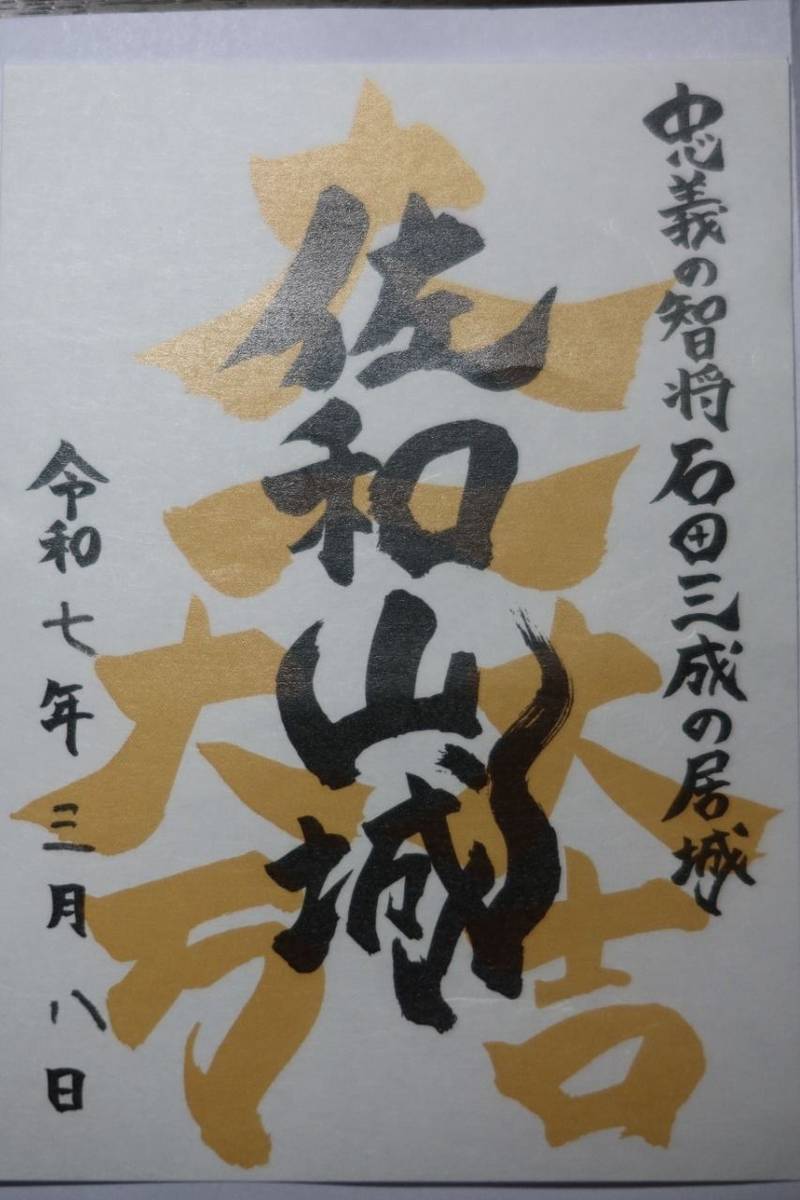 忠義の智将石田三成の居城
佐和山城
大一大万大吉
令和七年三月八日